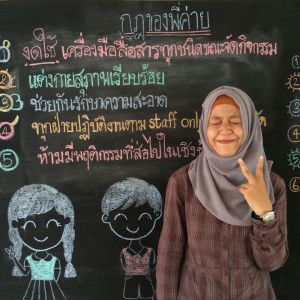 กฎของพี่ค่าย
① งดใช้ เครื่องมือสื่อสารทุกชนิดขณะจัดกิจกรรม
② แต่งกายสุภาพเรียบร้อย
③ ช่วยกันรักษาความสะอาด
④ ทุกฝ่ายปฏิบัติงานตาม staff
⑤ ห้ามมีพฤติกรรมที่ส่อไปในเชิง